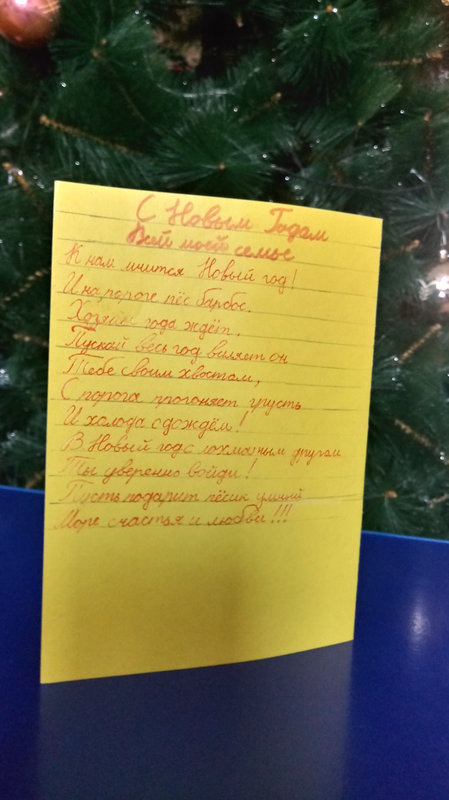 С Новым Годом
Всей моей семье
К нам мчится Новый год!
И на пороге пёс барбос.
Хозяин года ждёт.
Пускай весь год виляет он
Тебе своим хвостом,
С порога прогоняет грусть
И холода с дождём!
В Новый год с лохматым другом
Ты уверенно войди!
Пусть подарит пёсик умный
Море счастья и любви!!!